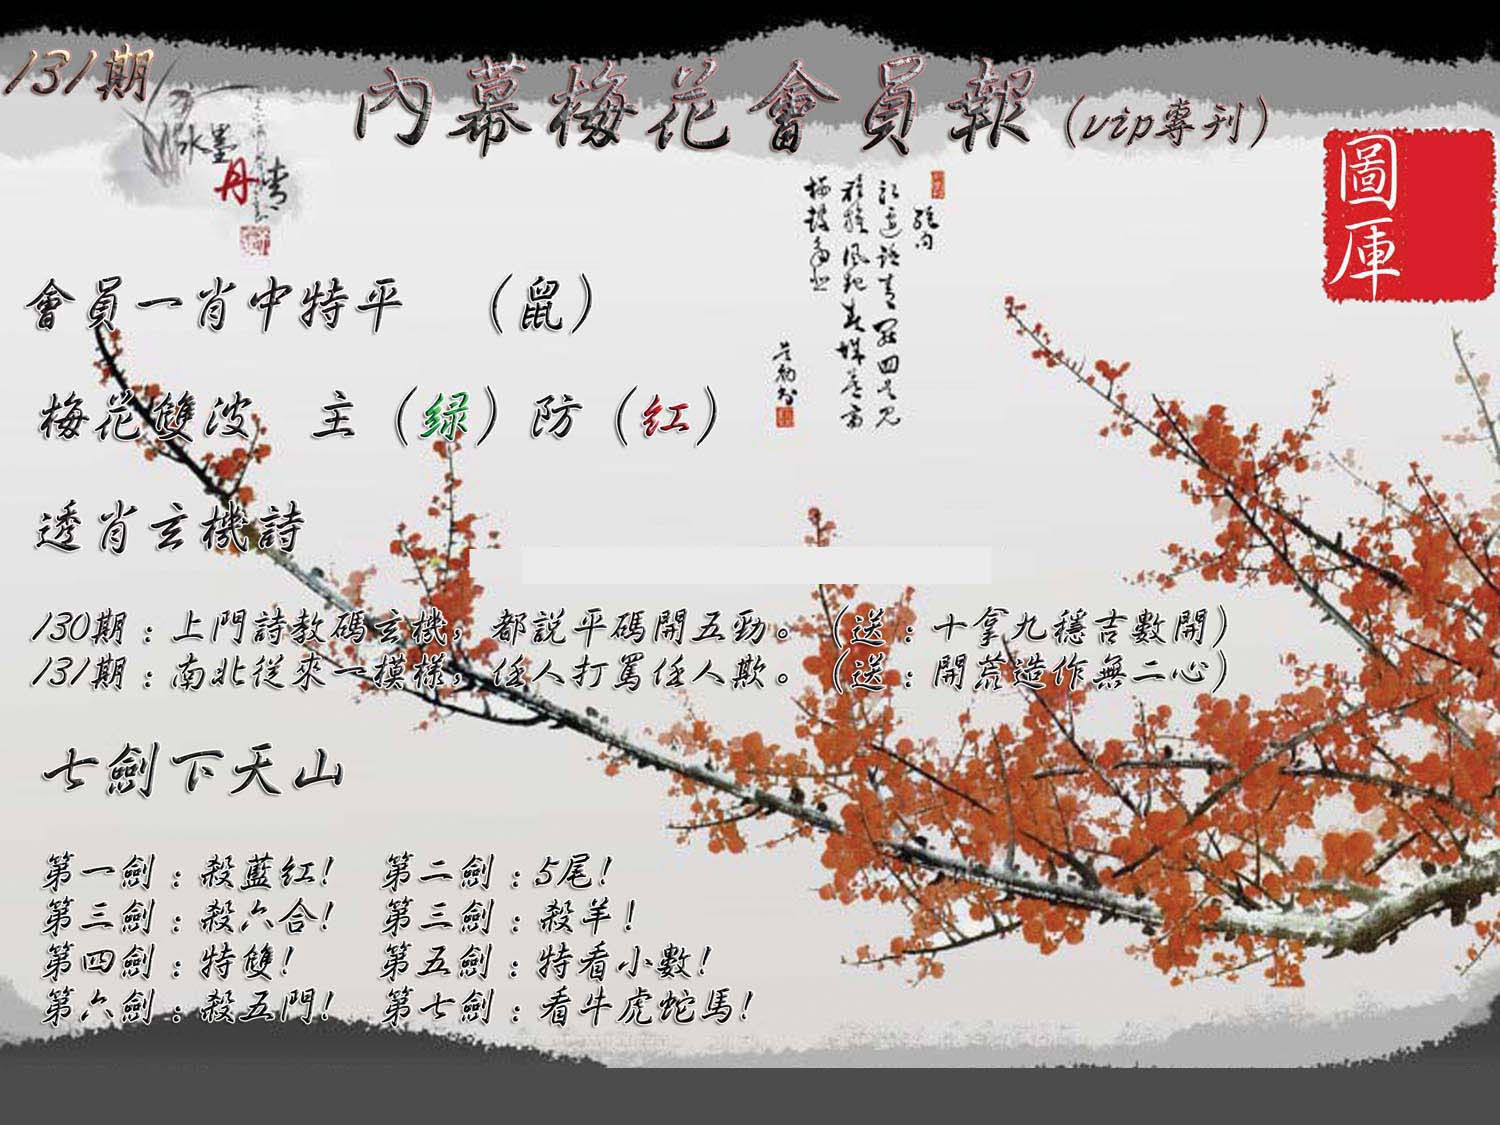 131期
內幕梅花會員報(vip專刊)
水墨
丹青
圖庫
會員一肖中特平 (鼠)
梅花雙波 主(绿)防(红)
透肖玄機詩
130期:上門詩教碼玄機,都說平碼開五勁。(送:十拿九穩吉數開)
131期:南北從來一摸樣,任人打罵任人欺。(送:開荒造作無二心)
七劍下天山
第一劍:殺藍红! 第二劍:5尾!
第三劍:殺六合! 第三劍:殺羊!
第四劍:特雙! 第五劍:特看小數!
第六劍:殺五門! 第七劍:看牛虎蛇馬!